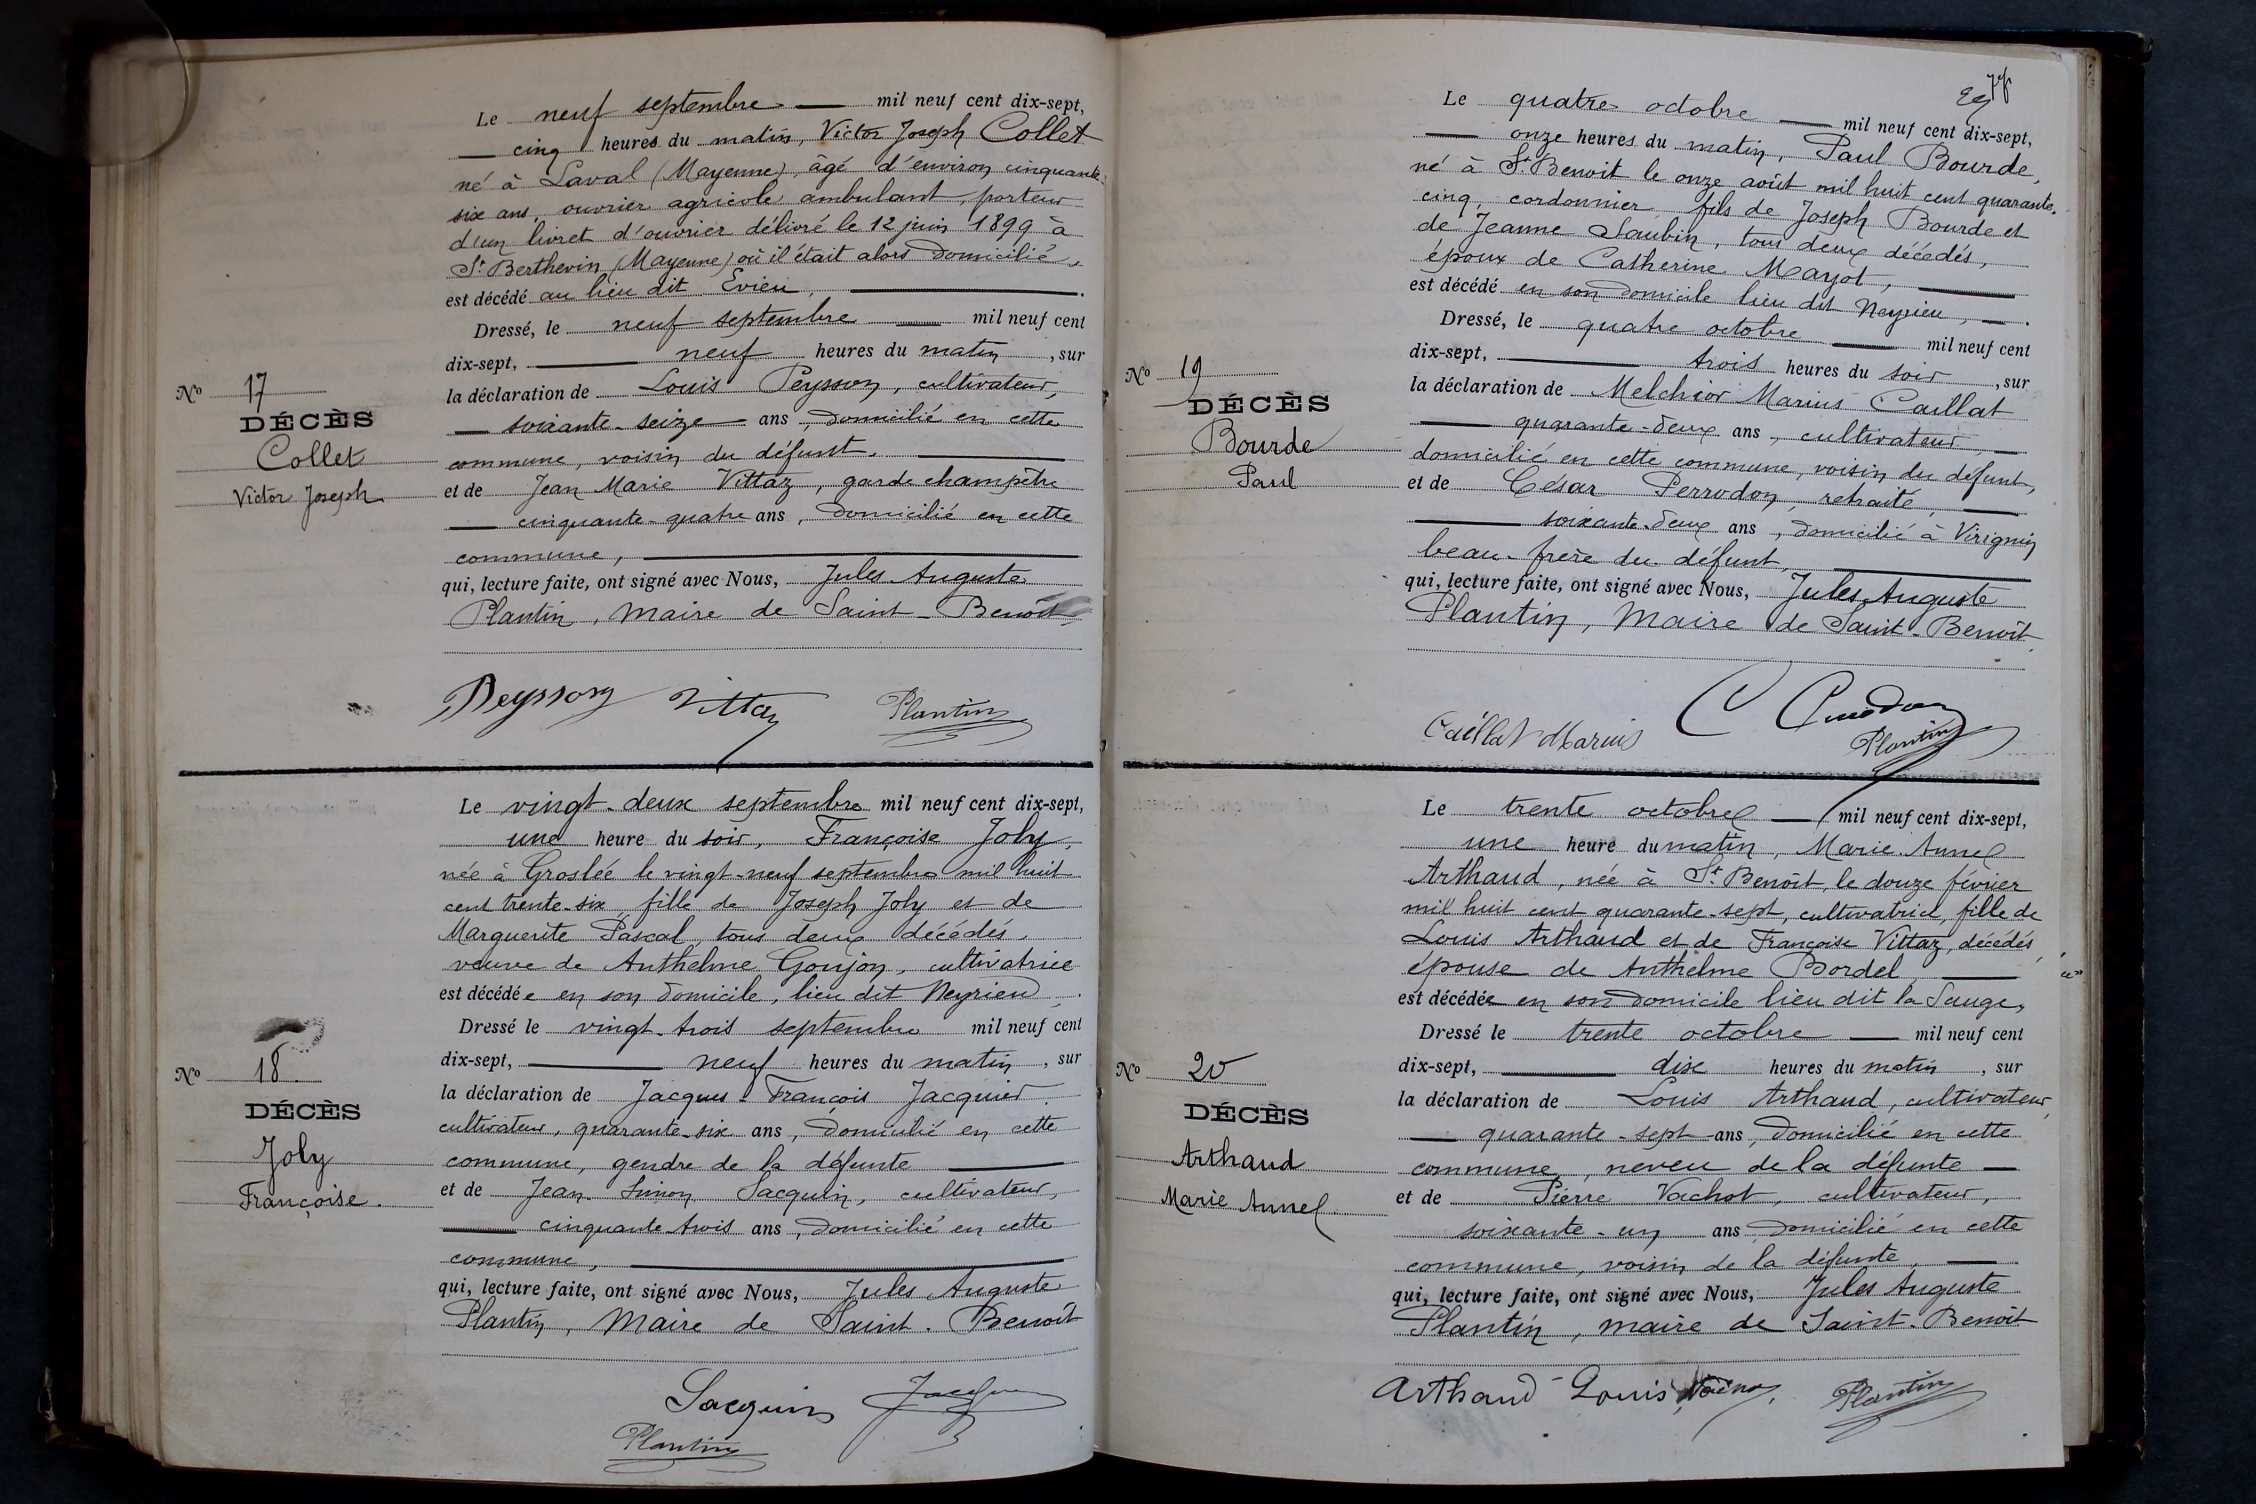 Le neuf septembre — mil neuf cent dix-sept,
— cinq heures du matin, Victor Joseph Collet
né à Laval (Mayenne), âgé d'environ cinquante-
six ans, ouvrier agricole ambulant, porteur
d'un livret d'ouvrier délivré le 12 juin 1899 à
St Berthevin (Mayenne) où il était alors domicilié,
est décédé au lieu dit Evieu, —.
Dressé, le neuf septembre — mil neuf cent
dix-sept, — neuf heures du matin, sur
la déclaration de Louis Peysson, cultivateur,
— soixante-seize ans, domicilié en cette
commune, voisin du défunt. —
et de Jean Marie Vittaz, garde champêtre
— cinquante-quatre ans, domicilié en cette
commune, —
qui, lecture faite, ont signé avec Nous, Jules Auguste
Plantin, Maire de Saint-Benoît
No 17
DÉCÈS
Collet
Victor Joseph
Peysson Vittaz Plantin
Le vingt-deux septembre mil neuf cent dix-sept,
une heure du soir, Françoise Joly,
née à Groslée le vingt-neuf septembre mil huit
cent trente-six, fille de Joseph Joly et de
Marguerite Pascal, tous deux décédés,
veuve de Anthelme Goujon, cultivatrice
est décédée en son domicile, lieu dit Neyrieu,.
Dressé le vingt-trois septembre mil neuf cent
dix-sept, — neuf heures du matin, sur
la déclaration de Jacques-François Jacquier,
cultivateur, quarante-six ans, domicilié en cette
commune, gendre de la défunte —
et de Jean Simon Sacquin, cultivateur,
— cinquante-trois ans, domicilié en cette
commune, —
qui, lecture faite, ont signé avec Nous, Jules Auguste
Plantin, Maire de Saint-Benoît
No 18.
DÉCÈS
Joly
Françoise.
Sacquin
Plantin
Le quatre octobre — mil neuf cent dix-sept,
— onze heures du matin, Paul Bourde,
né à St Benoit le onze août mil huit cent quarante-
cinq, cordonnier, fils de Joseph Bourde et
de Jeanne Saubin, tous deux décédés,
époux de Catherine Mayot, —
est décédé en son domicile lieu dit Neyrieu, —.
Dressé, le quatre octobre — mil neuf cent
dix-sept, — trois heures du soir, sur
la déclaration de Melchior Marius Caillat
— quarante-deux ans, cultivateur, —
domicilié en cette commune, voisin du défunt,
et de César Perrodon, retraité, —
— soixante-deux ans, domicilié à Virignin
beau-frère du défunt, —
qui, lecture faite, ont signé avec Nous, Jules Auguste
Plantin, Maire de Saint-Benoît
No 19
DÉCÈS
Bourde
Paul
Caillat Marius
Plantin
Le trente octobre — mil neuf cent dix-sept,
une heure du matin, Marie Annel
Arthaud, née à St Benoît, le douze février
mil huit cent quarante-sept, cultivatrice, fille de
Louis Arthaud et de Françoise Vittaz, décédés,
épouse de Anthelme Bordel —
est décédée en son domicile lieu dit la Sauge,
Dressé le trente octobre — mil neuf cent
dix-sept, — dix heures du matin, sur
la déclaration de Louis Arthaud, cultivateur,
— quarante-sept ans, domicilié en cette
commune, neveu de la défunte —
et de Pierre Vachot, cultivateur,
soixante-un ans domicilié en cette
commune, voisin de la défunte, —
qui, lecture faite, ont signé avec Nous, Jules Auguste
Plantin, maire de Saint-Benoît
No 20
DÉCÈS
Arthaud
Marie Annel
Arthaud Louis Plantin